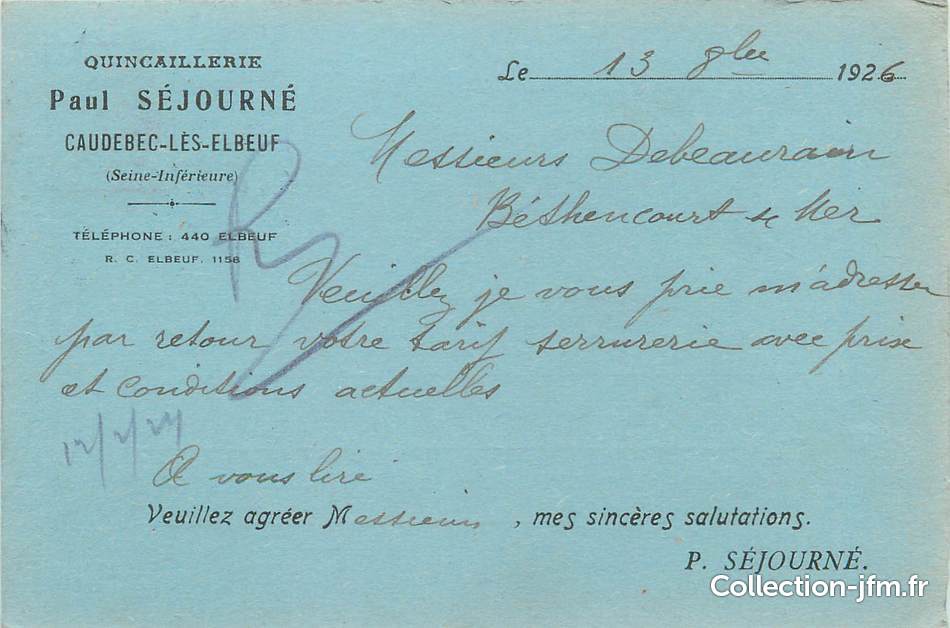 QUINCAILLERIE
Paul SÉJOURNÉ
CAUDEBEC-LÈS-ELBEUF
(Seine-Inférieure)
TÉLÉPHONE : 440 ELBEUF
R. C. ELBEUF. 1158
Le 13 8bre 1926
Messieurs Debeaurain
Béthencourt s/ Mer
Veuillez je vous prie m'adresser
par retour votre tarif serrurerie avec prix
et conditions actuelles
R
A vous lire
Veuillez agréer Messieurs, mes sincères salutations.
P. SÉJOURNÉ.
Collection-jfm.fr